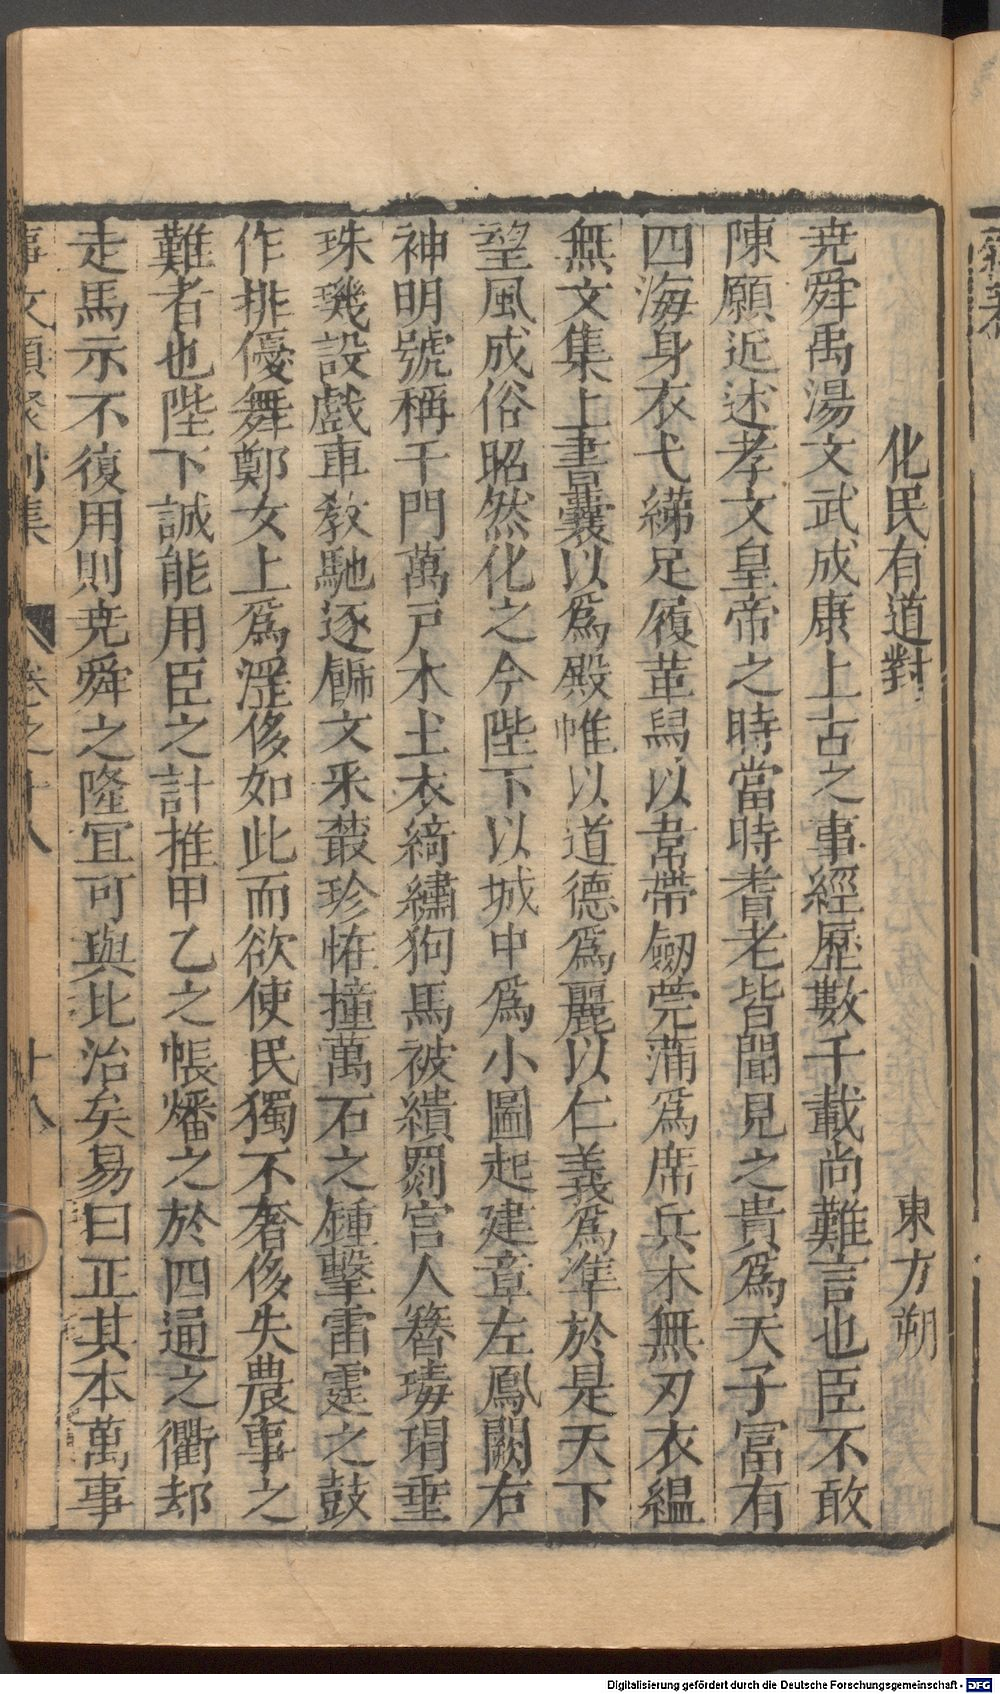 化民有道對 東方朔
尭舜禹湯文武成康上古之事經歷數千載尚難言也臣不敢
陳願近述孝文皇帝之時當時耆老皆聞見之貴爲天子富有
四海身衣弋綈足履革舄以韋帶劒莞蒲爲席兵木無刃衣緼
無文集上書囊以爲殿帷以道德爲麗以仁義爲準於是天下
望風成俗昭然化之今陛下以城中爲小圖起建章左鳳闕右
神明號稱千門萬戸木土衣綺繡狗馬被繢罽宫人簪瑇瑁垂
珠璣設戲車敎馳逐餙文釆叢珍恠撞萬石之鍾擊雷霆之鼓
作排優舞鄭女上爲滛侈如此而欲使民獨不奢侈失農事之
難者也陛下誠能用臣之計推甲乙之帳燔之於四通之衢却
走馬示不復用則尭舜之隆冝可與比治矣易曰正其本萬事
事文類聚别集 卷之十八 十八
Digitalisierung gefördert durch die Deutsche Forschungsgemeinschaft - DFG